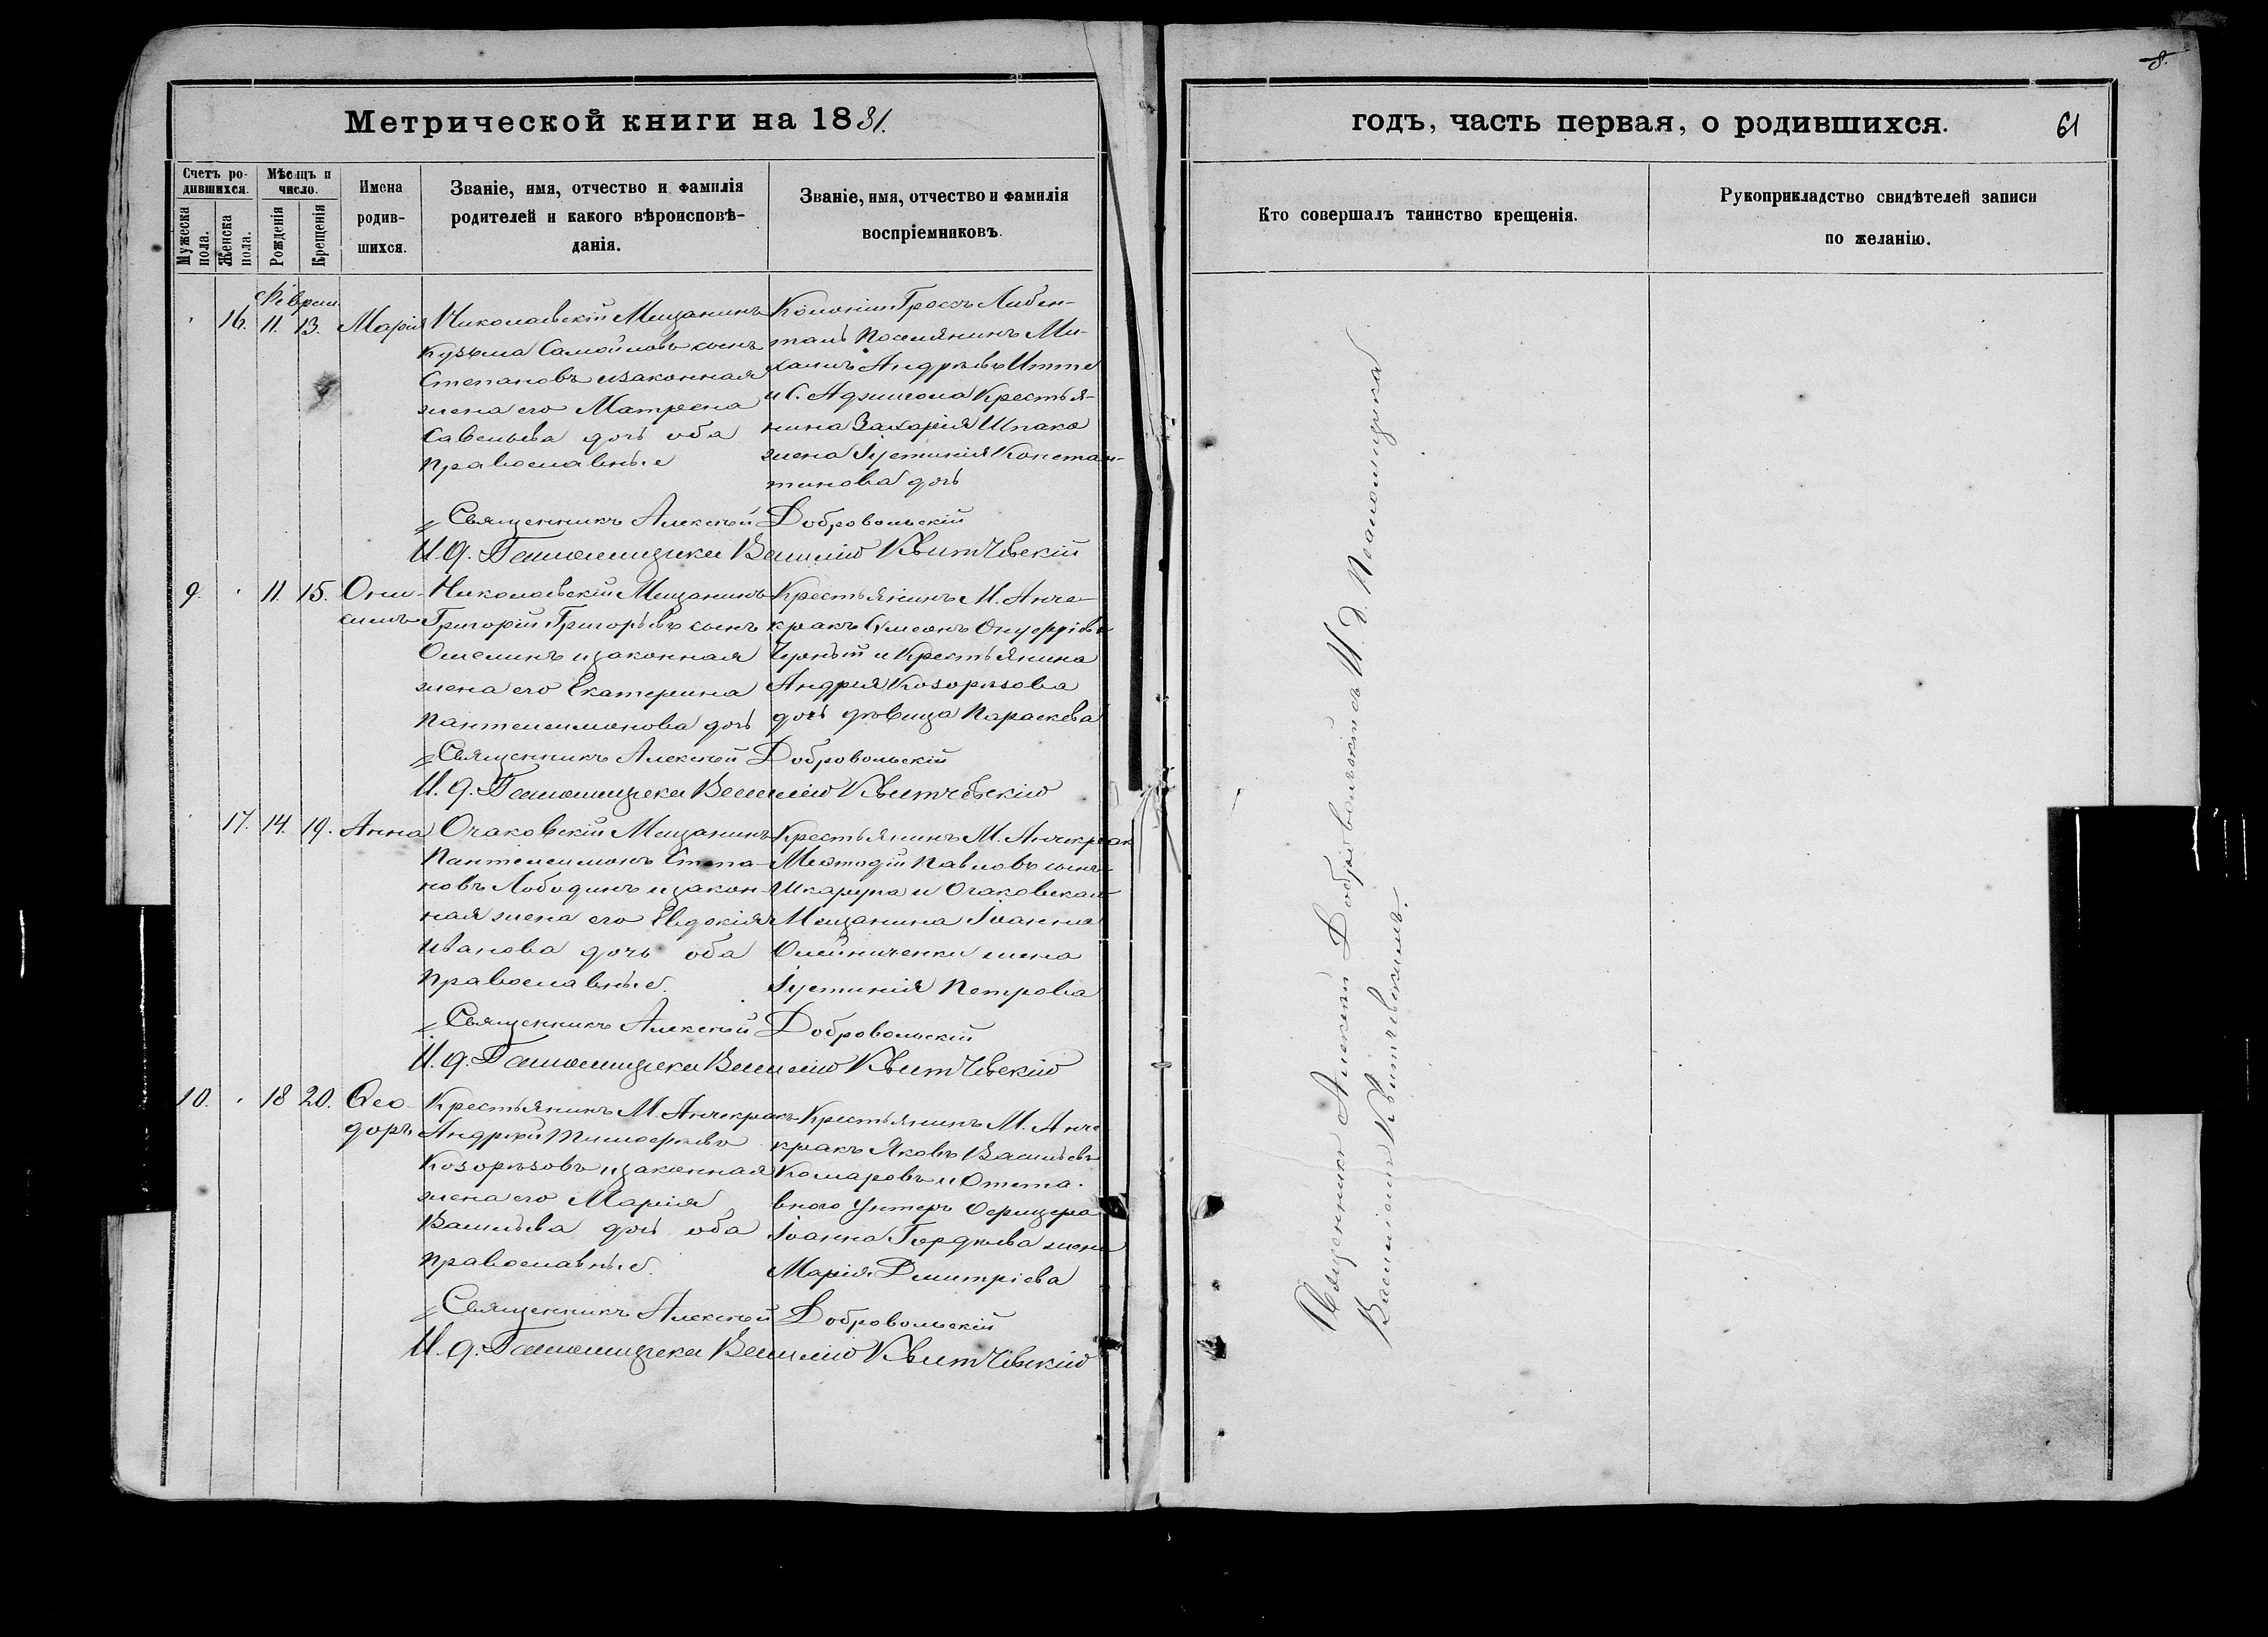 8.
Метрической книги на 1881.
годъ, часть первая, о родившихся. 61
Счетъ ро-
дившихся.
Мѣсяцъ и
число.
Мужеска
пола.
Женска
пола.
Рожденія
Крещенія
Имена
родив-
шихся.
Званіе, имя, отчество и фамилія
родителей и какого вѣроисповѣ-
данія.
Званіе, имя, отчество и фамилія
воспріемниковъ.
Кто совершалъ таинство крещенія.
Рукоприкладство свидѣтелей записи
по желанію.
Феврал.
16. 11. 13. Марія
Николаевскій Мещанинъ
Кузьма Самойловъ сынъ
Степановъ изаконная
жена его Матрена
Савельева дочь оба
православные
Колоніи Гроссъ Либен-
таль Поселянинъ Ми-
хаилъ Андреевъ Итте
и С. Аджигола Крестья-
нина Захарія Шпака
жена Іустинія Констан-
тинова дочь
Священникъ Алексѣй Добровольскій
И. д. Псаломщика Василій Квитчевскій
9. 11. 15. Они-
симъ
Николаевскій Мещанинъ
Григорій Григорьевъ сынъ
Омелинъ изаконная
жена его Екатерина
Пантелеимонова дочь
Крестьянинъ М. Анче-
кракъ Симеонъ Онуфріевъ
Чорный и Крестьянина
Андрея Козорѣзова
дочь дѣвица Параскева
Священникъ Алексѣй Добровольскій
И. д. Псаломщика Василій Квитчевскій
17. 14. 19. Анна
Очаковскій Мещанинъ
Пантелеимонъ Степа-
новъ Лободинъ изакон-
ная жена его Евдокія
Иванова дочь оба
православные.
Крестьянинъ М. Анчекрак
Меѳодій Павловъ сынъ
Шкарупа и Очаковскаго
Мещанина Іоанна
Олейниченки жена
Іустинія Петрова
Священникъ Алексѣй Добровольскій
И. д. Псаломщика Василій Квитчевскій
10. 18 20. Ѳео-
доръ
Крестьянинъ М. Анчекракъ
Андрей Тимоѳеевъ
Козорѣзовъ изаконная
жена его Марія
Васильева дочь оба
православные.
Крестьянинъ М. Анче
кракъ Яковъ Васильевъ
Комаровъ и Отста-
вного Унтеръ Офицера
Іоанна Гордѣева жена
Марія Дмитріева
Священникъ Алексѣй Добровольскій
И. д. Псаломщика Василій Квитчевскій
Священникъ Алексѣй Добровольскій съ И. Д. Псаломщика
Василіемъ Квитчевскимъ.